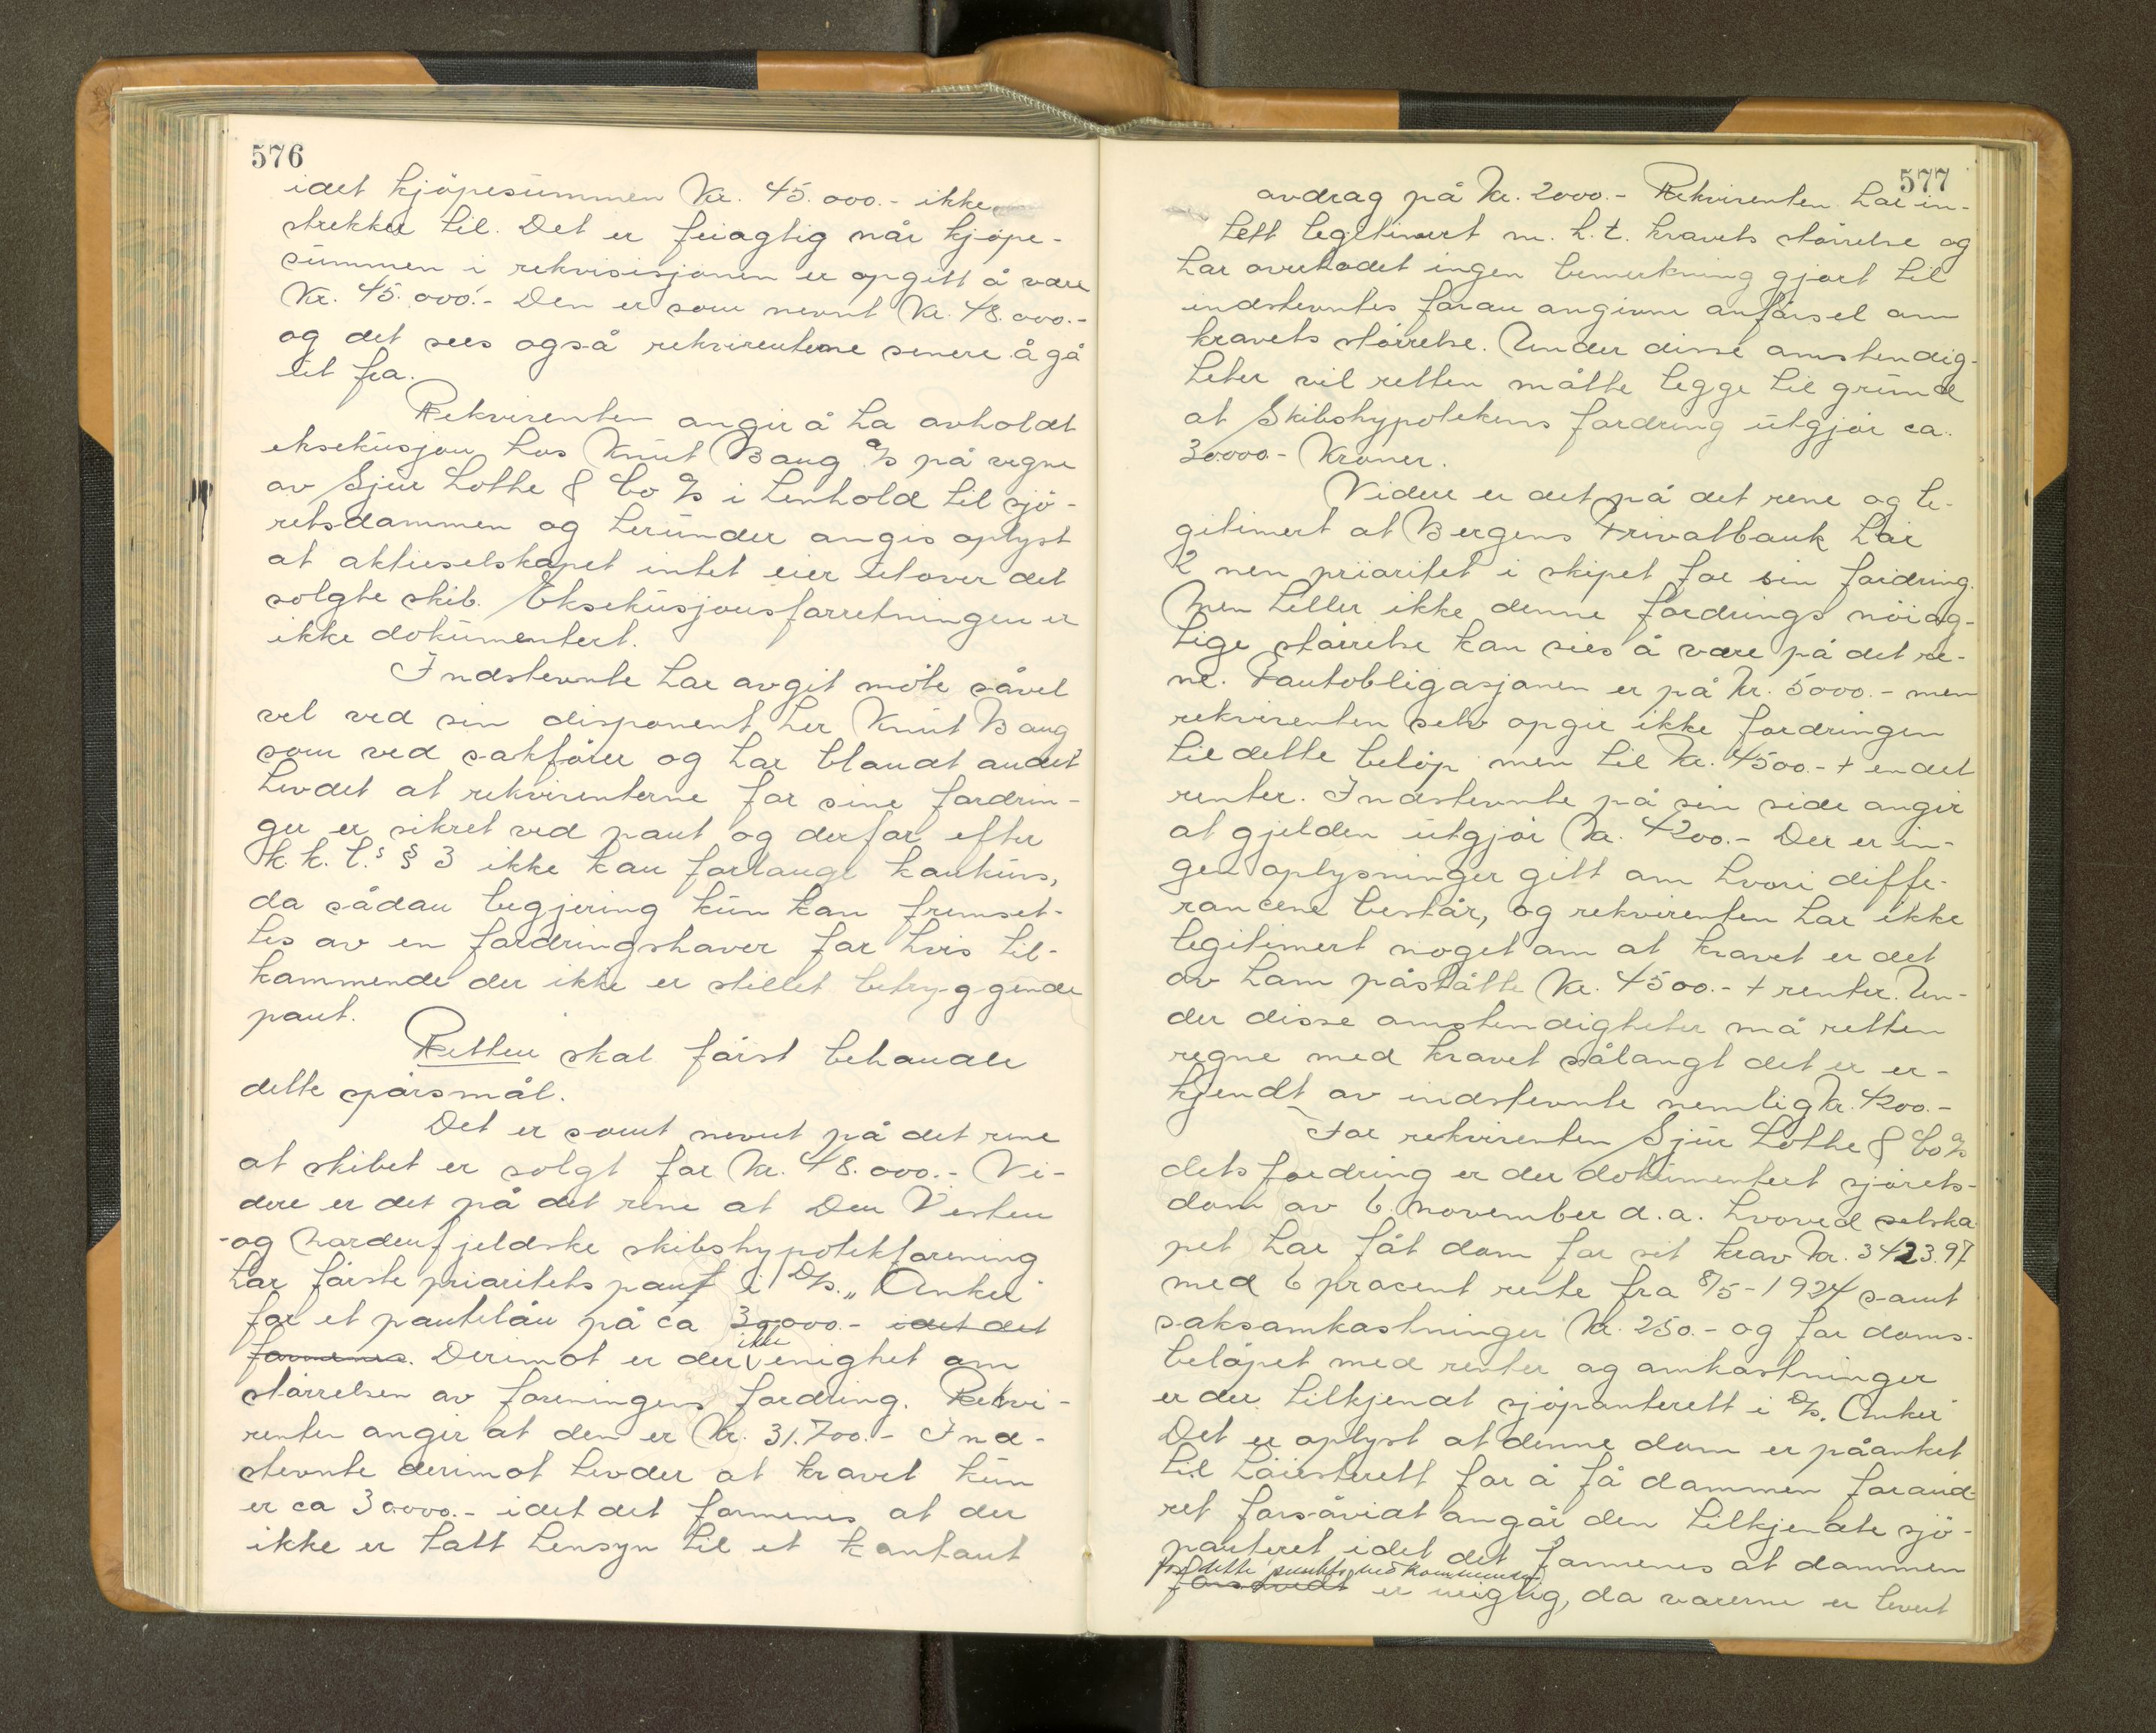 576
idet kjöpesummen Kr. 45.000.- ikke
strekker til. Det er feiagtig når kjöpe-
summen i rekvisisjonen er opgitt å være
Kr. 45.000.- Den er som nevnt Kr. 48.000.-
og det sees også rekvirenterne senere å gå
ut fra.
Rekvirenten angir å ha avholdt
eksekusjon hos Knut Baug A/S på vegne
av Sjur Lothe & Co A/S i henhold til sjö-
retsdommen og herunder angis oplyst
at aktieselskapet intet eier utover det
solgte skib. Eksekusjonsforretningen er
ikke dokumentert.
Indstevnte har avgit möte såvel
vel ved sin disponent hr Knut Baug
som ved sakförer og har blandt andet
hevdet at rekvirenterne for sine fordrin-
ger er sikret ved pant og derfor efter
k k. l.s § 3 ikke kan forlange konkurs,
da sådan begjering kun kan fremset-
tes av en fordringshaver for hvis til-
kommende der ikke er stillet betryggende
pant.
Retten skal först behandle
dette spörsmål.
Det er somt nevnt på det rene
at skibet er solgt for Kr. 48.000.- Vi-
dere er det på det rene at Den Vesten
-og Nordenfjeldske skibshypotekforening
har förste prioritets pant i D/S. „Anker"
for et pantelån på ca 30000.- idet det
formenes. Derimot er der ikke enighet om
störrelsen av foreningens fordring. Rekvi-
renten angir at den er Kr. 31.700.- Ind-
stevnte derimot hevder at kravet kun
er ca 30000.- idet det formenes at der
ikke er tatt hensyn til et kontant
577
avdrag på Kr. 2000.- Rekvirenten har in-
tett legitimert m. h. t. kravets störrelse og
har overhodet ingen bemerkning gjort til
indstevntes foran angivne anförsel om
kravets störrelse. Under disse omstendig-
heter vil retten måtte legge til grund
at Skibshypotekens fordring utgjör ca.
30000.- Kroner.
Videre er det på det rene og le-
gitimert at Bergens Privatbank har
2 nen prioritet i skipet for sin fordring.
Men heller ikke denne fordrings nöiag-
tige störrelse kan sies å være på det re-
ne. Pantobligasjonen er på Kr. 5000.- men
rekvirenten selv opgir ikke fordringen
til dette belöp men til Kr. 4500.- + endel
renter. Indstevnte på sin side angir
at gjelden utgjör Kr. 4200.- Der er in-
gen oplysninger gitt om hvori diffe-
rancene består, og rekvirenten har ikke
legitimert noget om at kravet er det
av ham påståtte Kr. 4500.- + renter. Un-
der disse omstendigheter må retten
regne med kravet sålangt det er er-
kjendt av indstevnte nemlig Kr. 4200.-
For rekvirenten Sjur Lothe & Co A/S
dets fordring er der dokumentert sjörets-
dom av 6. november d.a. hvorved selska-
pet har fåt dom for sit krav Kr. 3423.97
med 6 procent rente fra 8/5-1924 samt
saksomkostninger Kr. 250.- og for doms-
belöpet med renter og omkostninger
er der tilkjendt sjöpanterett i D/S. Anker"
Det er oplyst at denne dom er påanket
til höiesterett for å få dommen forand-
ret forsåvidt angår den tilkjendte sjö-
panteret idet det formenes at dommen
for dette punkts vedkommende
forsåvidt er uriglig, da varerne er levert